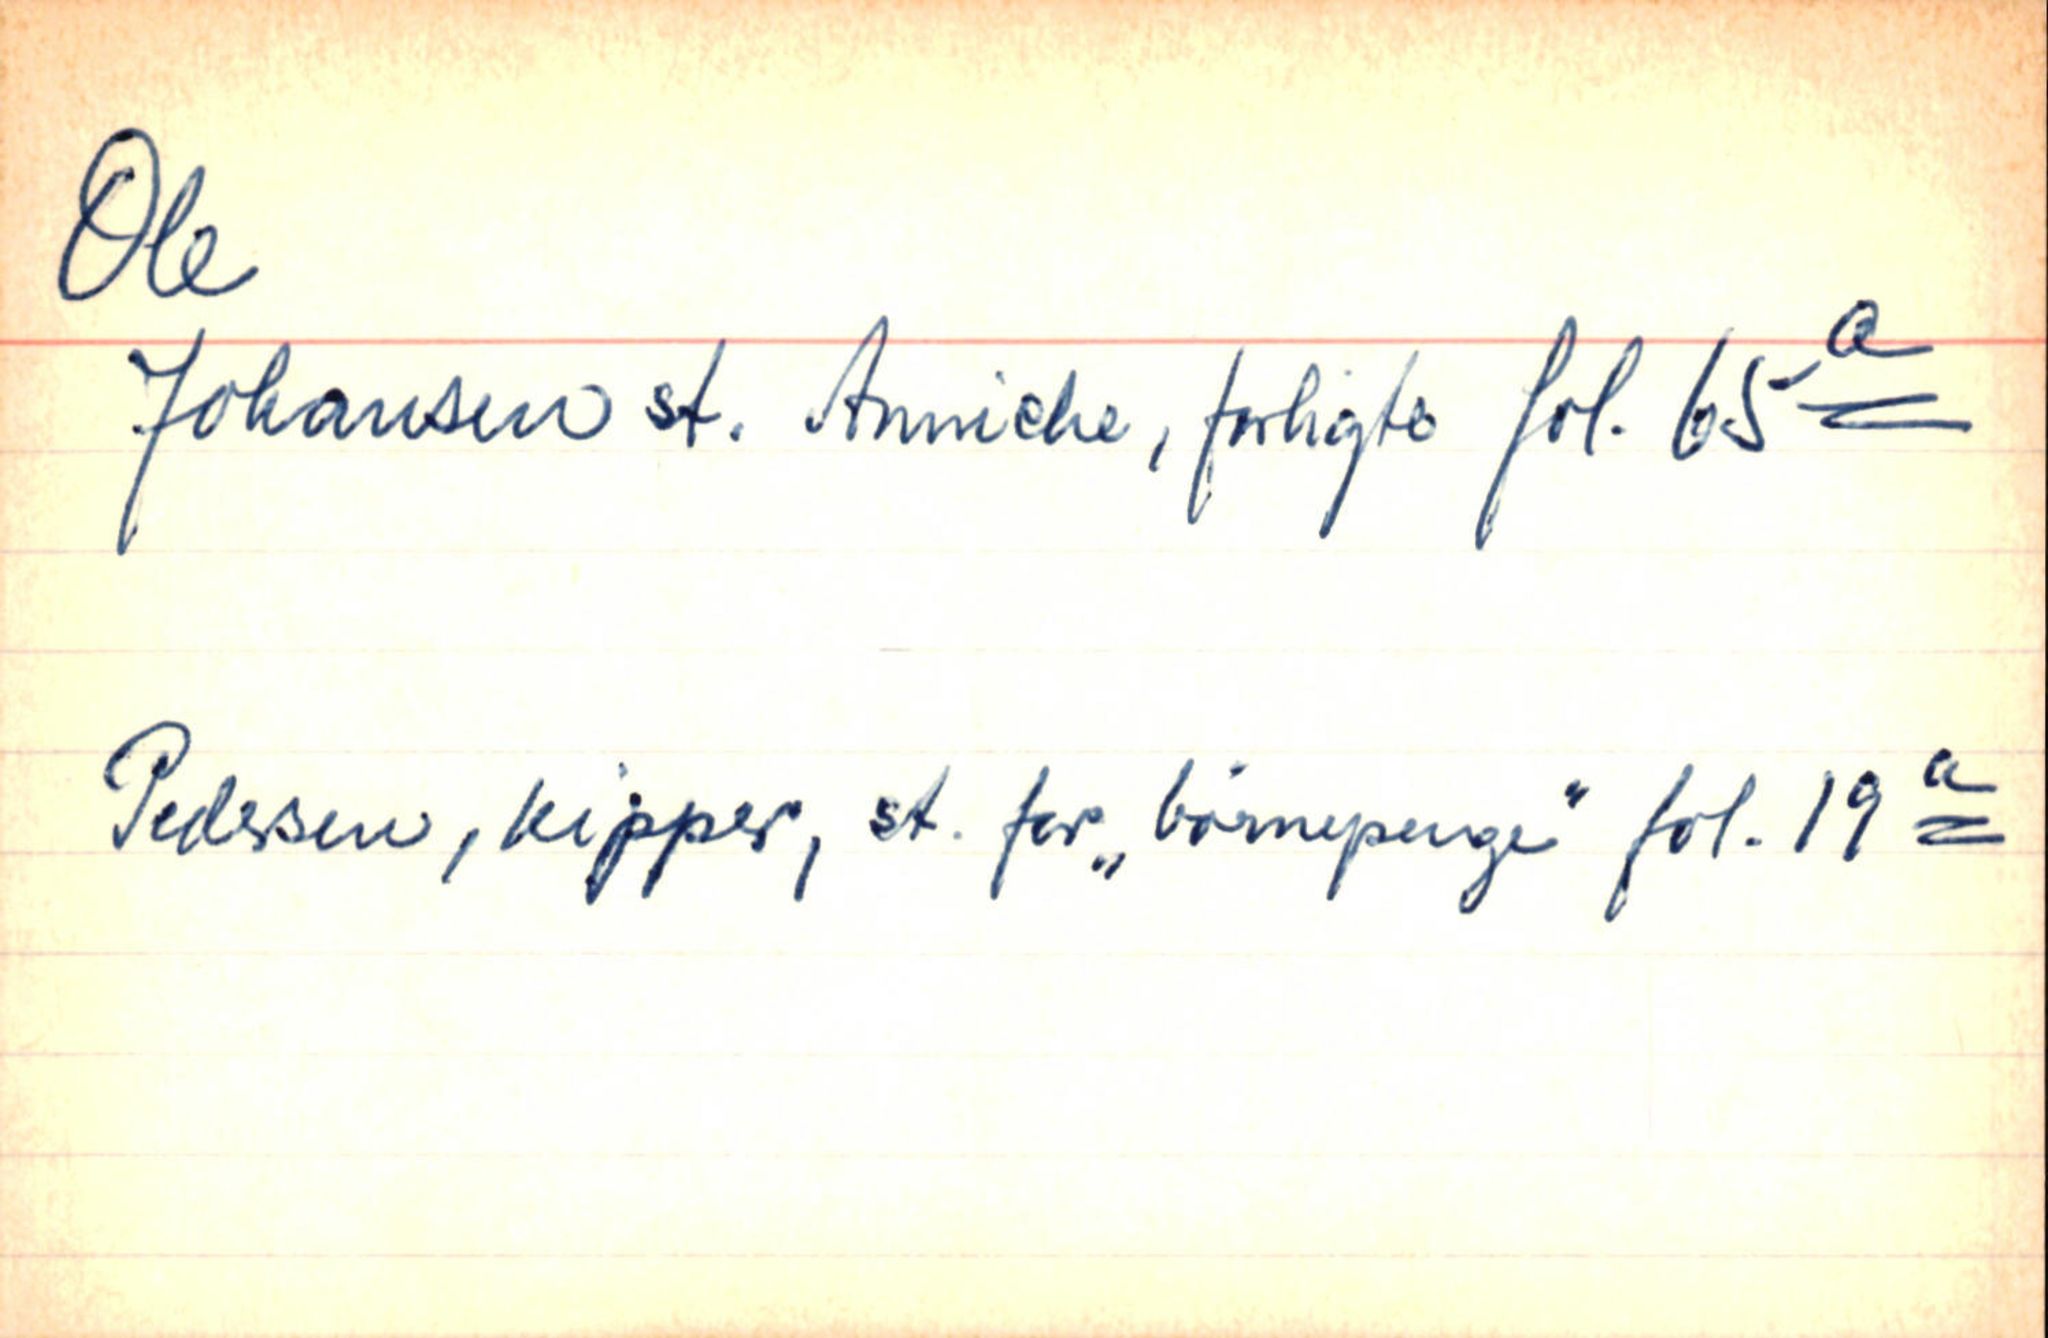 Ole
Johansen st. Anniche, forligte fol. 65a
Pedersen, kipper, st. for „börnepenge“ fol. 19a